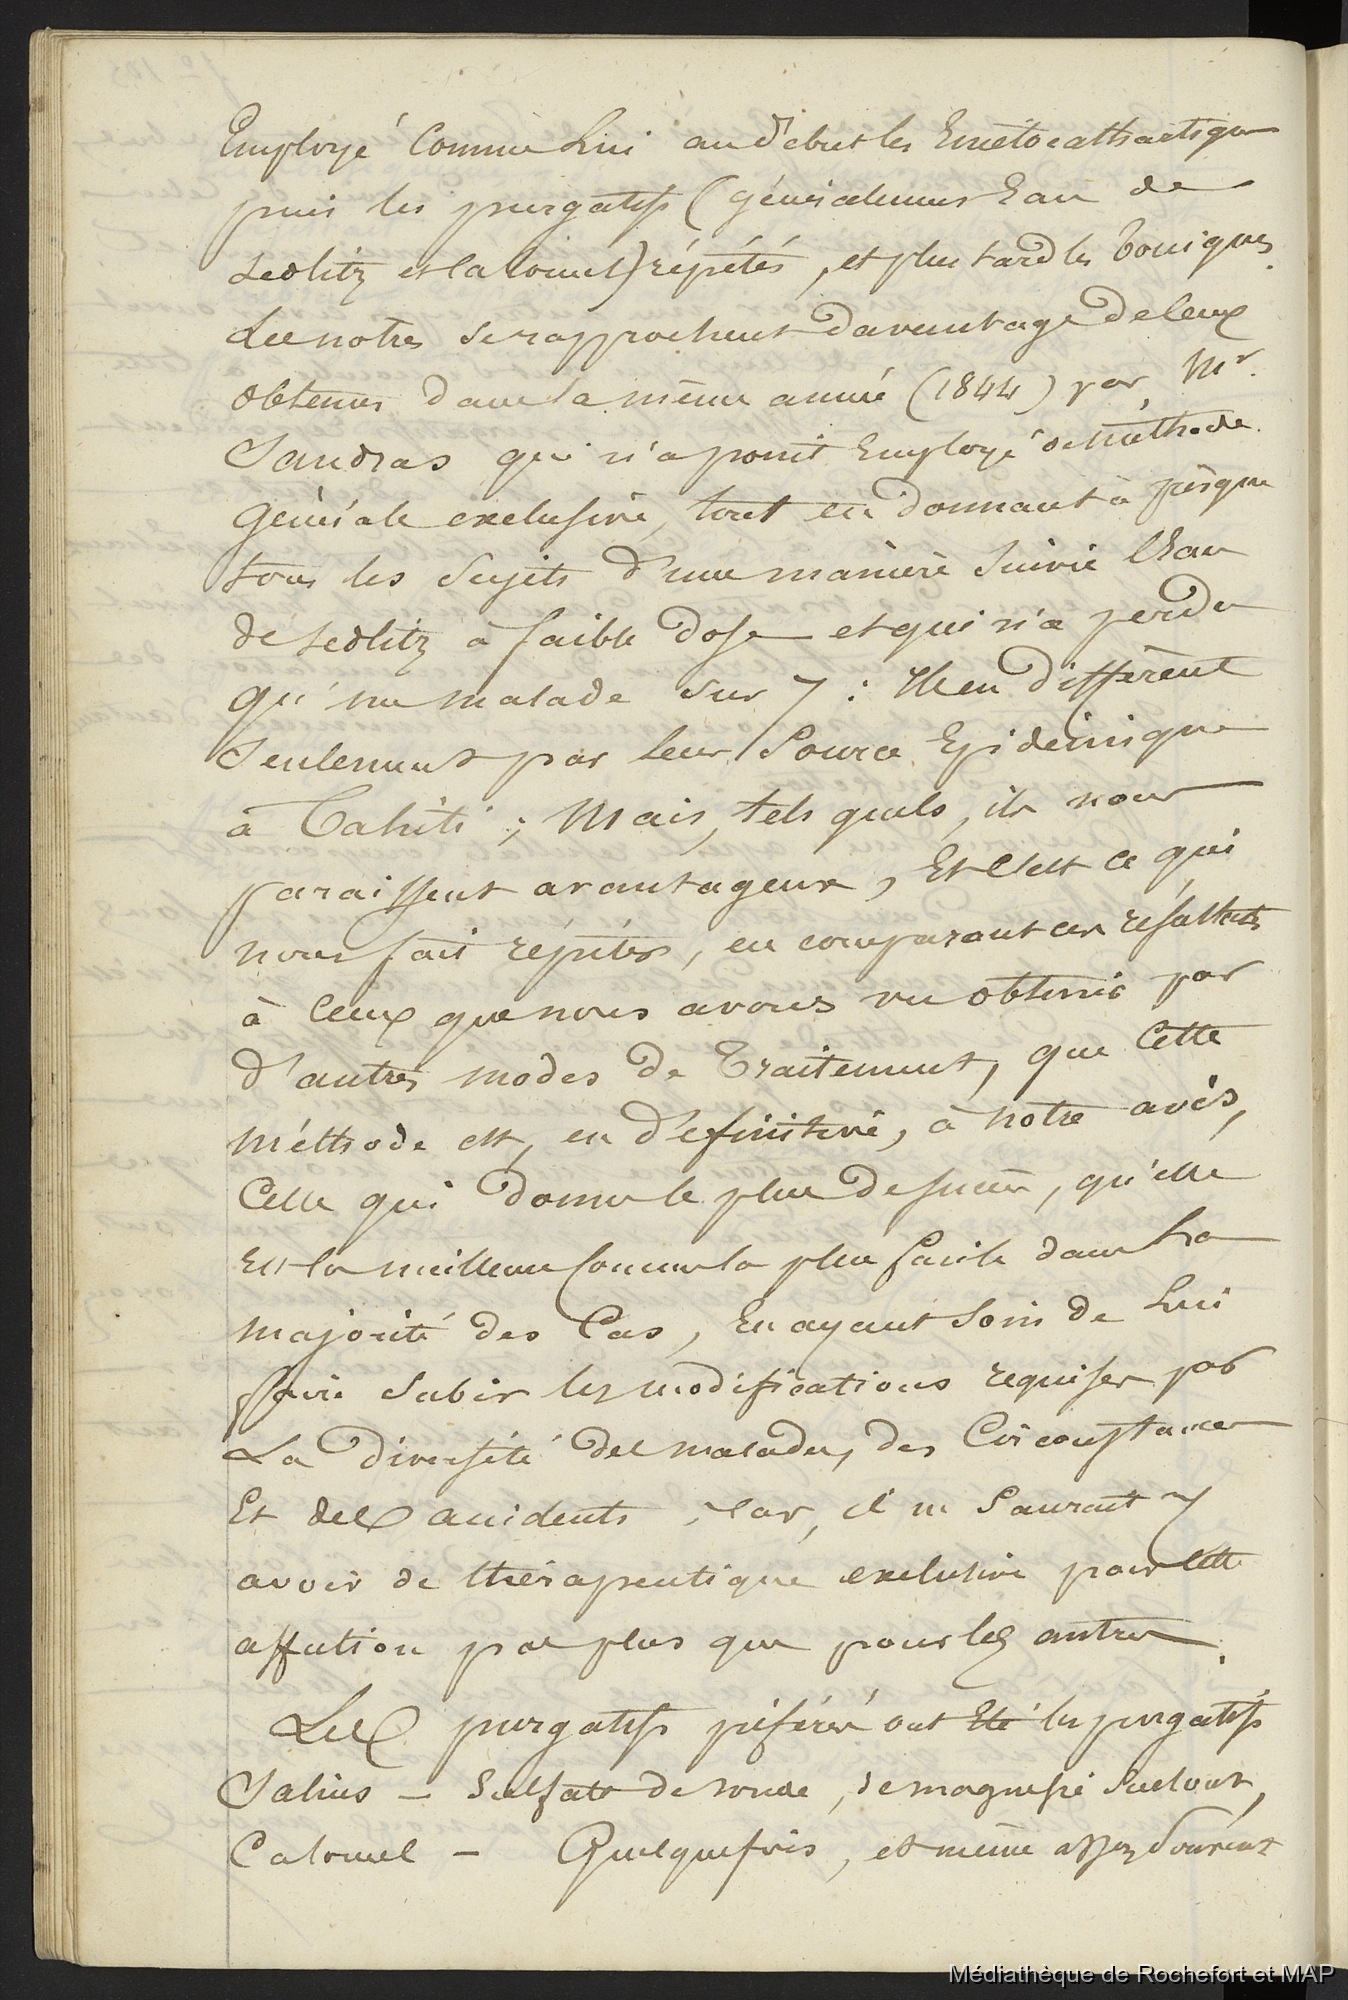 Employé Comme Lui au débuts les Emétocathartiques
puis les purgatifs (généralement Eau de
Sedlitz et Calomel) répétés, et plus tard les toniques.
Les notres se rapprochent davantage de Ceux
obtenus dans la même année (1844) par Mr.
Sandras qui n'a point Employé de Méthode
Générale exclusive, tout en donnant à presque
tous les Sujets d'une manière Suivie l'Eau
de Sedlitz à faible dose et qui n'a perdu
qu'un malade Sur 7 : Ils en diffèrent
Seulement par leur Source Epidémique
à Tahiti ; Mais, tels quels, ils nous
paraissent avantageux, Et C'est ce qui
nous fait répéter, en comparant ces résultats
à Ceux que nous avons vu obtenir par
d'autres modes de Traitement, que Cette
Méthode est, en définitive, à notre avis,
Celle qui donne le plus de succès, qu'elle
Est la meilleure Comme la plus facile dans La
majorité des Cas, En ayant Soin de Lui
faire Subir les modifications requises par
La diversité des malades, des Circonstances
Et des accidents, Car, il ne Saurait y
avoir de thérapeutique exclusive pour Cette
affection pas plus que pour les autres.
Les purgatifs préférés ont Eté les purgatifs
Salins – Sulfate de soude, de magnésie Surtout,
Calomel – Quelquefois, et même assez Souvent
Médiathèque de Rochefort et MAP